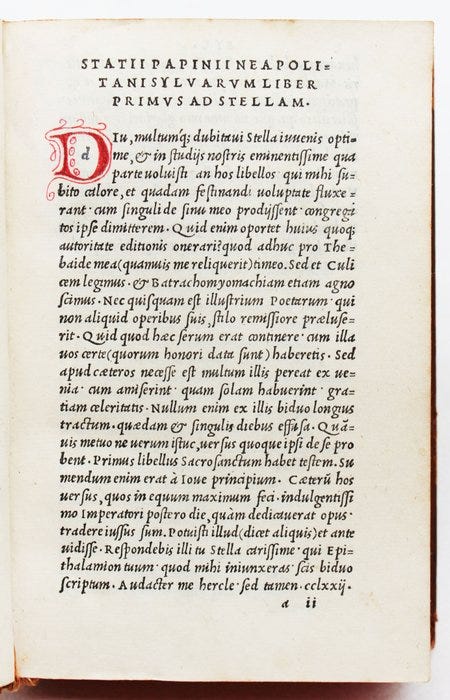 STATII PAPINII NEAPOLI=
TANI SYLVARVM LIBER
PRIMVS AD STELLAM.
DIu, multumq; dubitaui Stella iuuenis opti=
me, & in studijs nostris eminentissime qua
parte uoluisti an hos libellos qui mihi su=
bito calore, et quadam festinandi uoluptate fluxe=
rant· cum singuli de sinu meo prodijssent· congrega
tos ipse dimitterem. Quid enim oportet huius quoq;
autoritate editionis onerari? quod adhuc pro The=
baide mea (quamuis me reliquerit) timeo. Sed et Culi
cem legimus· & Batrachomyomachiam etiam agno
scimus· Nec quisquam est illustrium Poetarum· qui
non aliquid operibus suis, stilo remissiore præluse=
rit· Quid quod hæc serum erat continere· cum illa
uos certe (quorum honori data sunt) haberetis· Sed
apud cæteros necesse est multum illis pereat ex ue=
nia· cum amiserint· quam solam habuerint· gra=
tiam celeritatis· Nullum enim ex illis biduo longius
tractum· quædam & singulis diebus effusa. Quã=
uis metuo ne uerum istuc, uersus quoque ipsi de se pro
bent· Primus libellus Sacrosanctum habet testem. Su
mendum enim erat à Ioue principium· Cæterũ hos
uersus, quos in equum maximum feci· indulgentissi
mo Imperatori postero die, quàm dedicauerat opus·
tradere iussus sum. Potuisti illud (dicet aliquis) et ante
uidisse· Respondebis illi tu Stella carissime· qui Epi=
thalamion tuum· quod mihi iniunxeras· scis biduo
scriptum· Audacter me hercle· sed tamen· cclxxij·
a ii